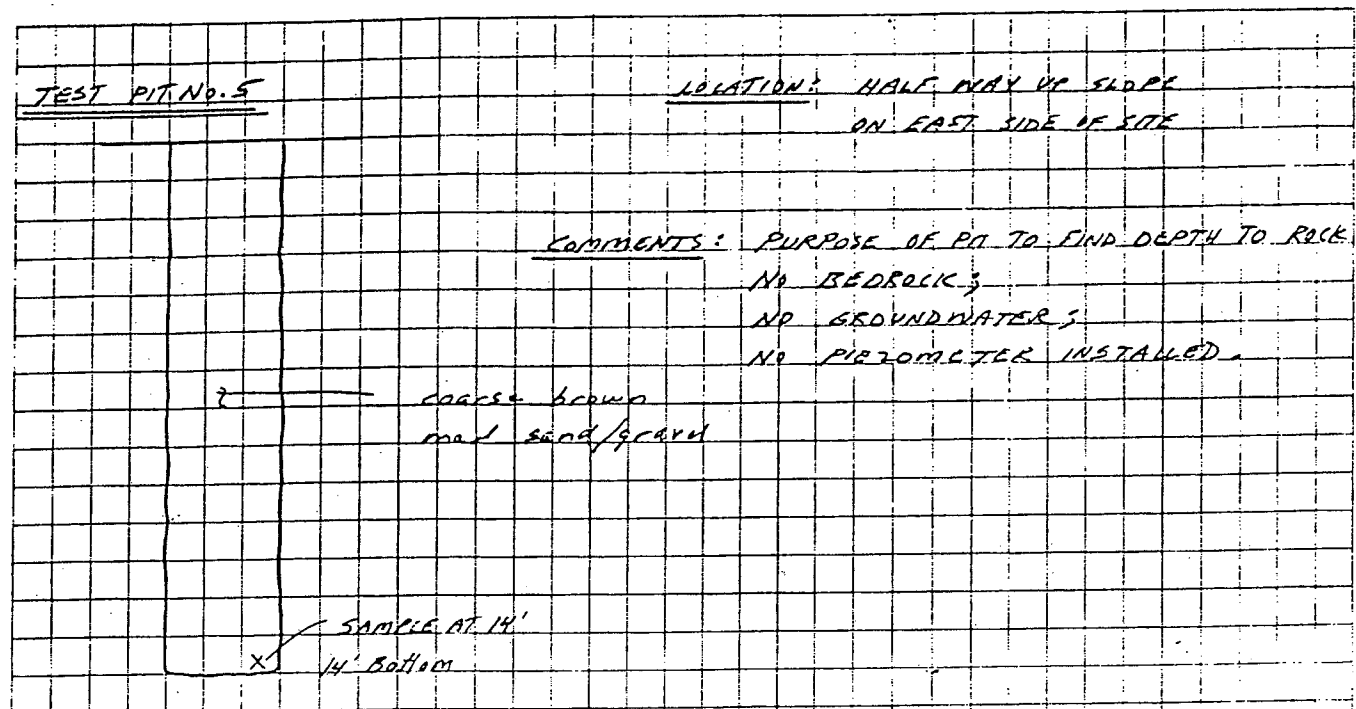 TEST PIT NO. 5
LOCATION: HALF WAY UP SLOPE
ON EAST SIDE OF SITE
COMMENTS: PURPOSE OF PIT TO FIND DEPTH TO ROCK
NO BEDROCK;
NO GROUNDWATER;
NO PIEZOMETER INSTALLED.
coarse brown
med sand/gravel
SAMPLE AT 14'
X
14' Bottom